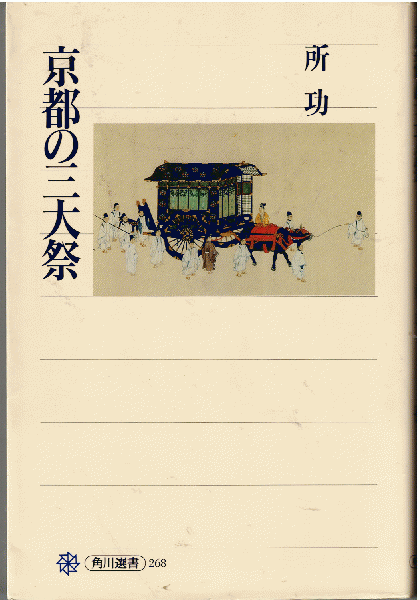 京都の三大祭
所 功
角川選書 268